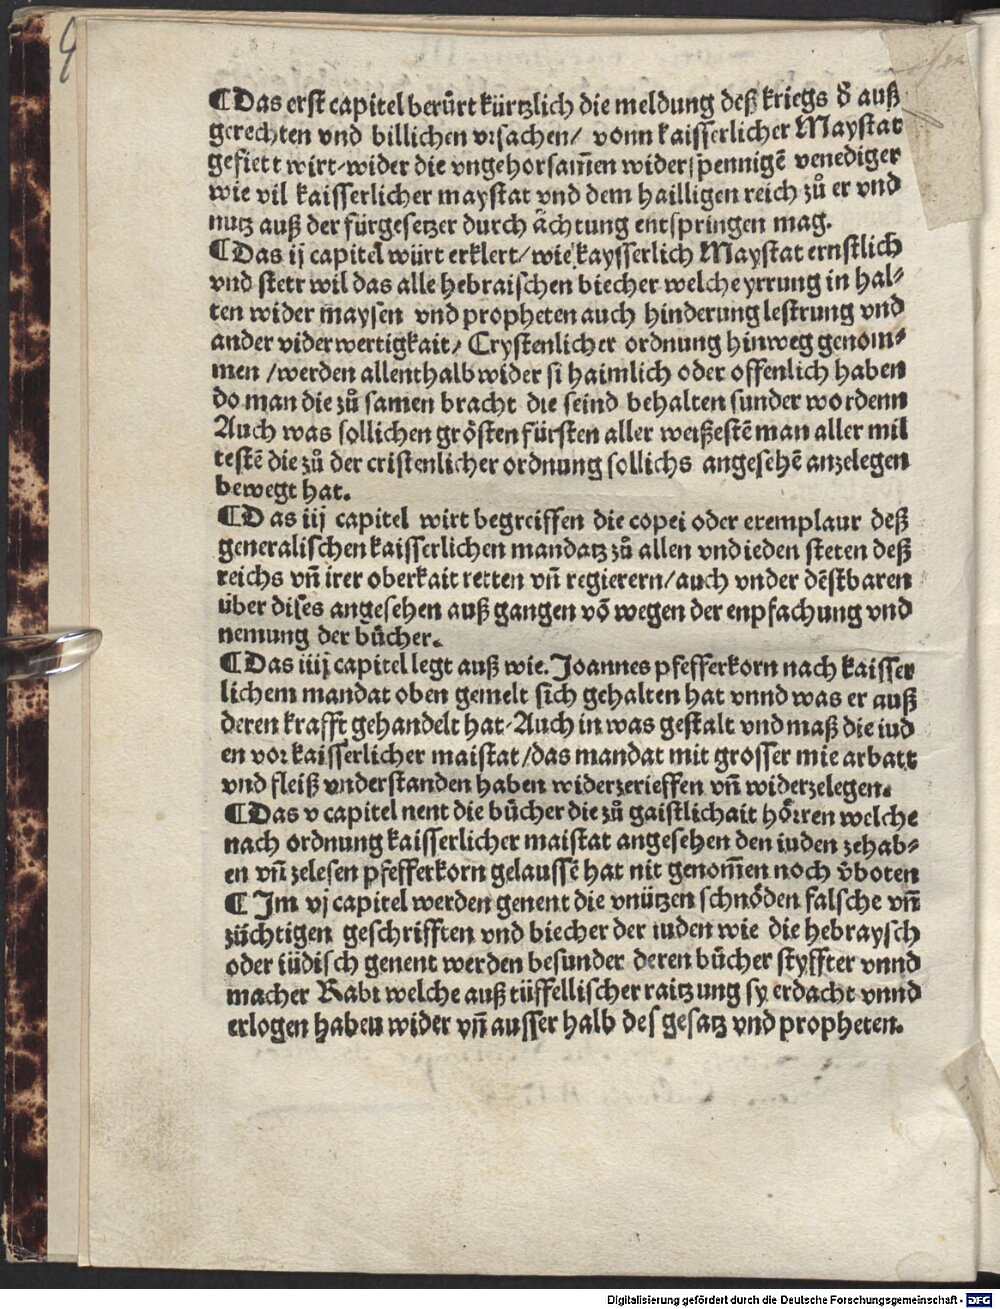 ¶Das erst capitel berůrt kürtzlich die meldung deß kriegs ð auß
gerechten vnd billichen vrsachen/ vonn kaisserlicher Maystat
gefiett wirt/wider die vngehorsam̄en widerspennigē venediger
wie vil kaisserlicher maystat vnd dem hailligen reich zů er vnd
nutz auß der fürgesetzer durch ächtung entspringen mag.
¶Das ij capitel würt erklert/wie kaysserlich Maystat ernstlich
vnd stett wil das alle hebraischen biecher welche yrrung in hal⸗
ten wider maysen vnd propheten auch hinderung lestrung vnd
ander viderwertigkait/ Crystenlicher ordnung hinweg genom⸗
men /werden allenthalb wider si haimlich oder offenlich haben
do man die zů samen bracht die seind behalten sunder wordenn
Auch was sollichen grösten fürsten aller weißestē man aller mil
testē die zů der cristenlicher ordnung sollichs angesehē anzelegen
bewegt hat.
¶Das iij capitel wirt begreiffen die copei oder exemplaur deß
generalischen kaisserlichen mandatz zů allen vnd ieden steten deß
reichs vn̄ irer oberkait retten vn̄ regierern/auch vnder dēstbaren
über dises angesehen auß gangen vō wegen der enpfachung vnd
nemung der bůcher.
¶Das iiij capitel legt auß wie. Joannes pfefferkorn nach kaisser
lichem mandat oben gemelt sich gehalten hat vnnd was er auß
deren krafft gehandelt hat/Auch in was gestalt vnd maß die iud
en vor kaisserlicher maistat/das mandat mit grosser mie arbatt
vnd fleiß vnderstanden haben widerzerieffen vn̄ widerzelegen.
¶Das v capitel nent die bůcher die zů gaistlichait hörren welche
nach ordnung kaisserlicher maistat angesehen den iuden zehab⸗
en vn̄ zelesen pfefferkorn gelaussē hat nit genom̄en noch v̊boten
¶Im vj capitel werden genent die vnützen schnöden falsche vn̄
züchtigen geschrifften vnd biecher der iuden wie die hebraysch
oder iüdisch genent werden besunder deren bůcher styffter vnnd
macher Rabi welche auß tüffellischer raitzung sy erdacht vnnd
erlogen haben wider vn̄ ausser halb des gesatz vnd propheten.
Digitalisierung gefördert durch die Deutsche Forschungsgemeinschaft - DFG